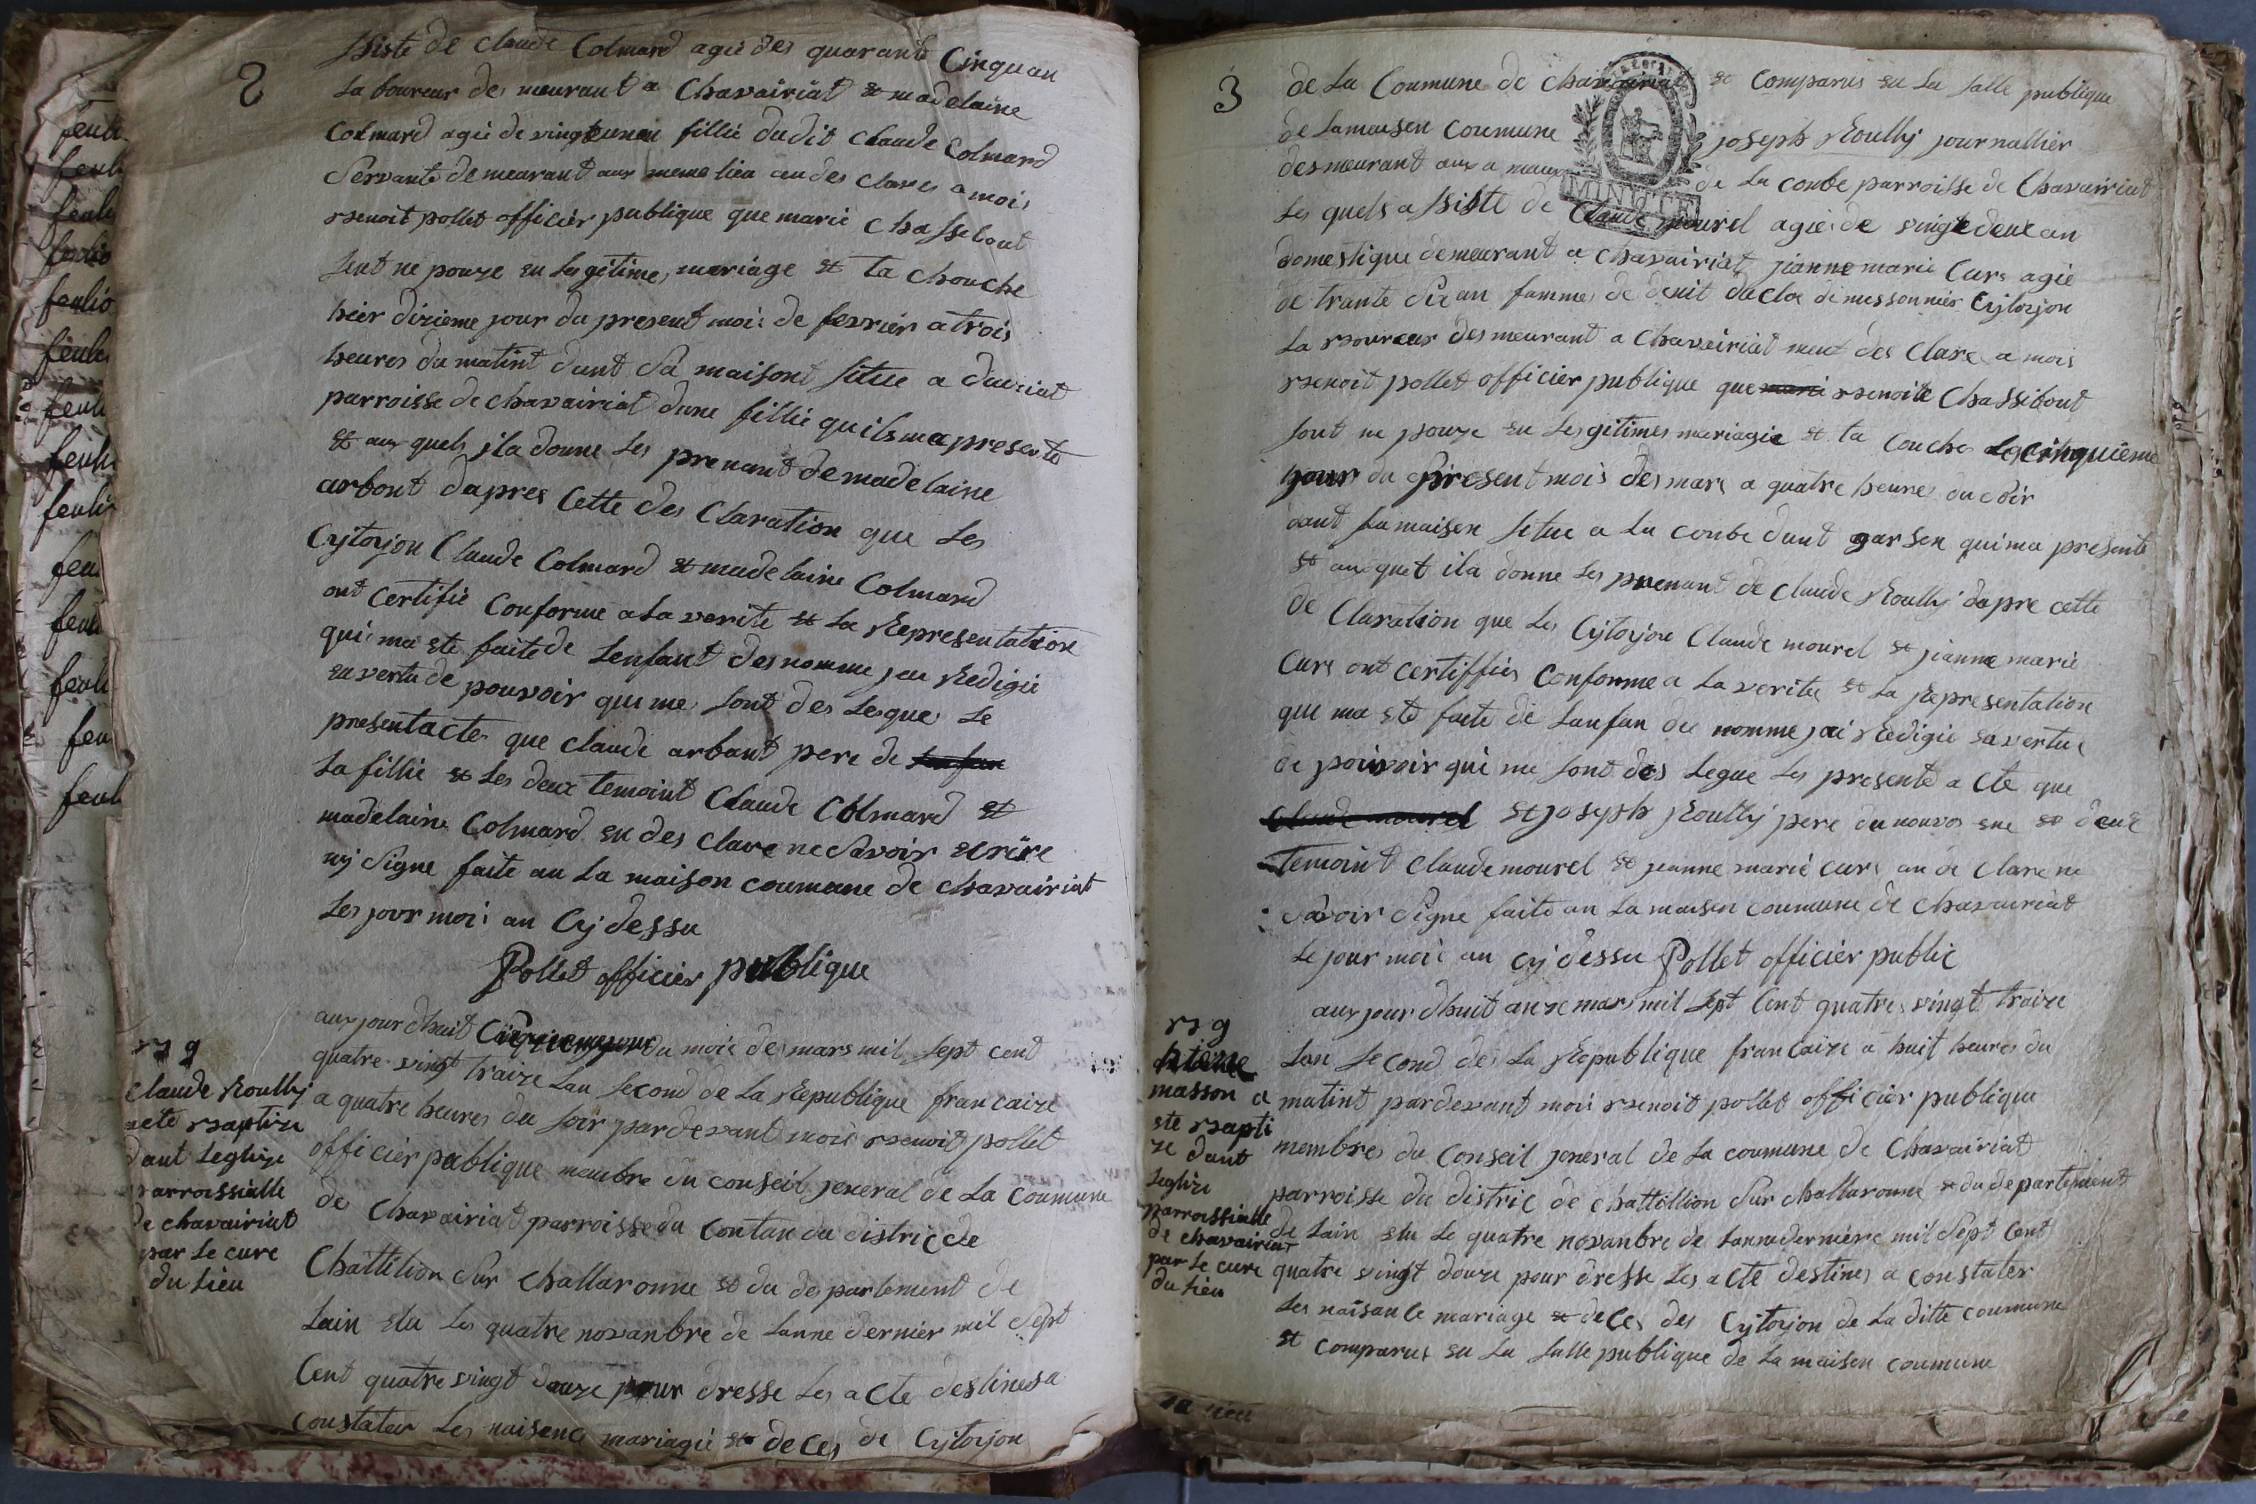 2
ssiste de Claude Colmard agie des quarante Cinquan
La boureur des meurant a Chavairiat et madelaine
Colmard agie de vingteunan fillie dudit Claude Colmard
Servante demeurant aux meme lieu eu des clares a moi
Benoit pollet officier publique que marie Chassibout
sent ne pouze en Legitime mariage et ta chouche
hier dizieme jour du present mois de fevrier a trois
heures du matint dant Sa maisont situe a
parroisse de chavairiat dune fillie quils ma presente
et aux quels jla donne Les prenant de madelaine
arbont dapres Cette des Claration que Les
Cytoyon Claude Colmard et madelaine Colmard
ont certifie Conforme a La verite et La Representation
qui ma ete faite de Lenfant desnomme jeu Redigie
en vertu de pouvoir qui me sont des Legue Le
present acte que claude arbant pere de
La fillie et Les deux temoint Claude Colmard et
madelaine Colmard en des Clare ne Savoir ecrire
ny Signe faite au La maison coumune de chavairiat
Les jour moi an Cy dessu
Pollet officier publique
aux jour dhuit Cinquieme jour du mois des mars mil sept cent
quatre vingt traize Lan second de La Republique francaize
a quatre heures du soir pardevant moi Benoit pollet
officier publique manbre du conseil jeneral de La Coumune
de Chavairiat parroisse du Contan du distric de
Chattilion Sur challaronne et du departement de
Lain elu Les quatre novanbre de Lanne dernier mil Sept
Cent quatre vingt douze pour dresse Les acte destines a
constater Les naisence mariagie et deces de Cytoyon
B 9
Claude Roully
a ete Baptize
dant Leglize
parroissialle
de chavairiat
par Le cure
du Lieu
3
de La Coumune de chavairiat et Comparus en La salle publique
de Lamaisen Coumune joseph Roully journallier
desmeurant aux a maux de La conbe parroisse de Chavairiat
Les quels assiste de Claude mourel agie de vingtedeux an
domestique demeurant a chavairiat jianne marie Curs agie
de trante Six an famme de Cytoyon
La Boureur des meurant a Chavairiat des Clare a mois
Benoit pollet officier publique que marie Benoite Chassibout
sont ne pouze en Legitimes mariagie et ta couche Les cinquieme
jour du present mois des mars a quatre heures du soir
dant sa maisen situe a La conbe dunt garsen qui ma presente
et auxquet il a donne Les prenant de Claude Roully dapre cette
de Claration que Les Cytoyon Claude mourel et jianne marie
Curs ont certiffiés Conforme a La verite et La Representation
que ma ete faite de Lanfan de nomme jai Redigie en vertu
de pouvoir qui me sont des Legue Les presente acte que
Claude mourel et joseph Roully pere du nouvos ene et deux
temoint Claude mourel et jeanne marie curs an de Clare ne
Savoir Signe faite an La maisen coumune de chavairiat
Le jour moi an cy dessu Pollet officier public
aux jour dhuit anze mars mil sept Cent quatre vingt traize
Lan second des La Republique francaize a huit heures du
matint pardevant moi Benoit pollet officier publique
membres du Conseil jeneral de La coumune de Chavairiat
parroisse du distric de chattillion Sur challaronne et du departement
de Lain elu Le quatre novanbre de Lanne derniere mil Sept Cent
quatre vingt douze pour dresse Les acte destines a constater
Les naisance mariage et deces des Cytoyon de La ditte coumune
et comparus en La salle publique de La maisen coumune
B 9
masson a
ete Bapti
ze dant
Leglize
parroissialle
de chavairiat
par Le cure
du Lieu
MINUTE